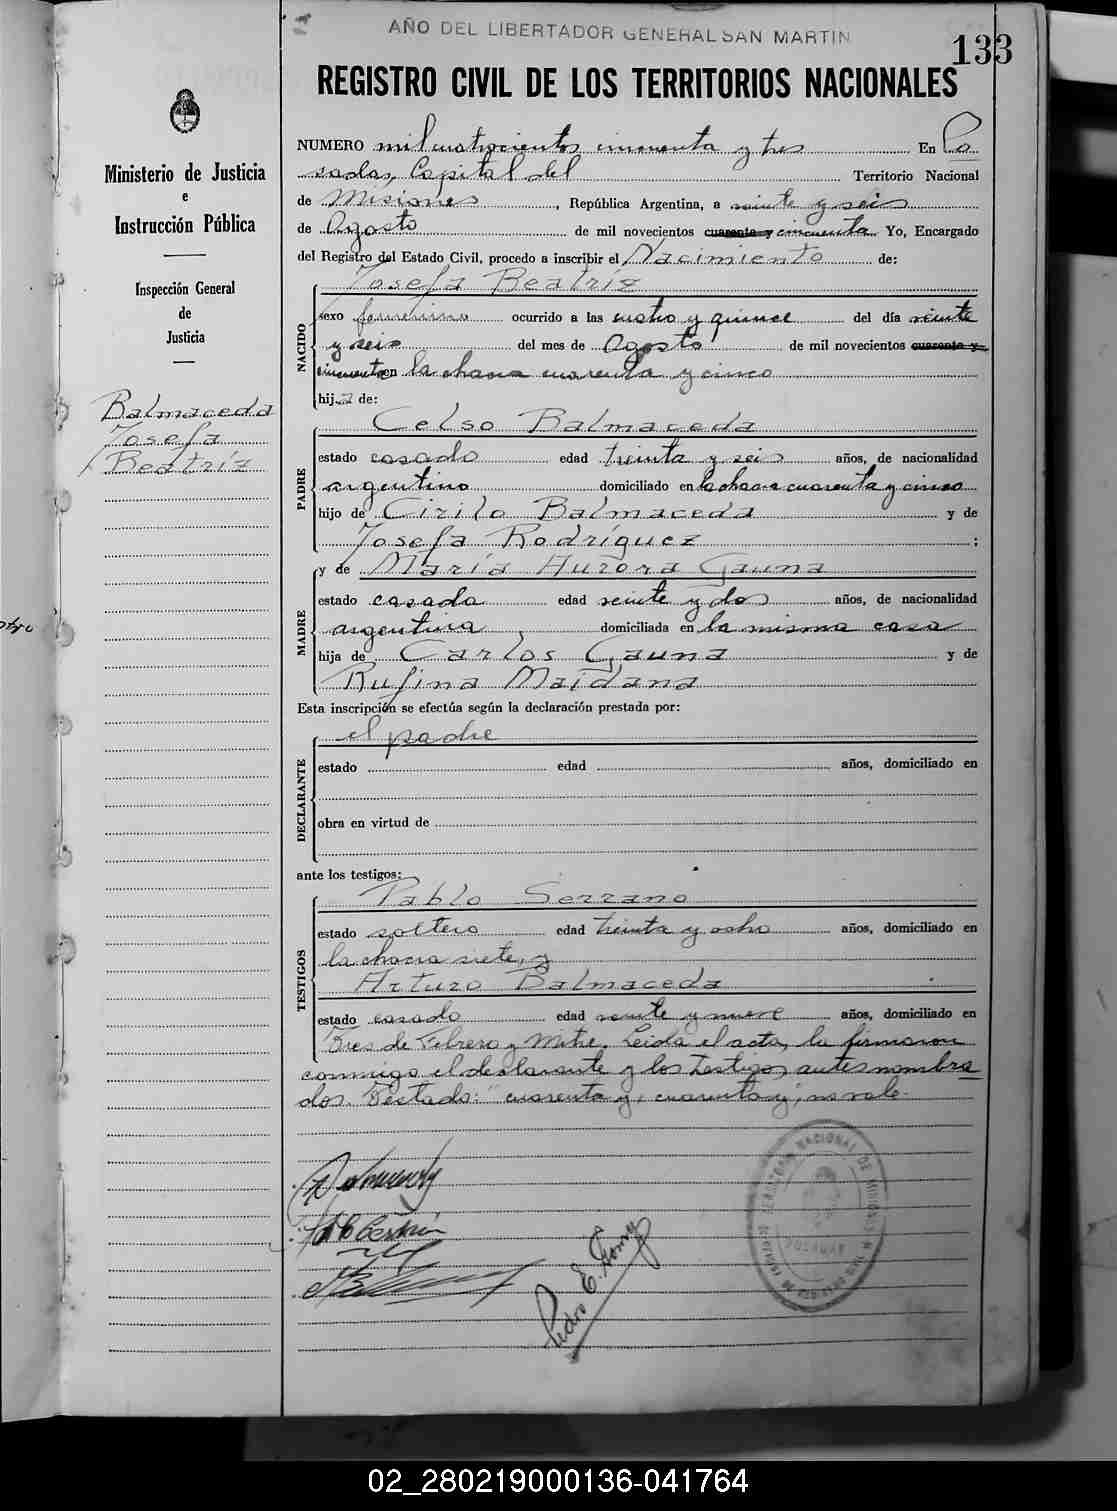 AÑO DEL LIBERTADOR GENERAL SAN MARTIN
133
REGISTRO CIVIL DE LOS TERRITORIOS NACIONALES
Ministerio de Justicia
e
Instrucción Pública
Inspección General
de
Justicia
Balmaceda
Josefa
Beatríz
NUMERO mil cuatrocientos cincuenta y tres En Po
sadas, Capital del Territorio Nacional
de Misiones, República Argentina, a veinte y seis
de Agosto de mil novecientos cuarenta y cincuenta Yo, Encargado
del Registro del Estado Civil, procedo a inscribir el Nacimiento de:
NACIDO
Josefa Beatríz
sexo femenino ocurrido a las cuatro y quince del día veinte
y seis del mes de Agosto de mil novecientos cuarenta y
cincuenta en la chacra cuarenta y cinco
hija de:
PADRE
Celso Balmaceda
estado casado edad treinta y seis años, de nacionalidad
argentino domiciliado en la chacra cuarenta y cinco
hijo de Cirilo Balmaceda y de
Josefa Rodríguez;
MADRE
y de María Aurora Gauna
estado casada edad veinte y dos años, de nacionalidad
argentina, domiciliada en la misma casa
hija de Carlos Gauna y de
Rufina Maidana
Esta inscripción se efectúa según la declaración prestada por:
DECLARANTE
el padre
estado edad años, domiciliado en
obra en virtud de
ante los testigos:
TESTIGOS
Pablo Serrano
estado soltero edad treinta y ocho años, domiciliado en
la chacra siete, y
Arturo Balmaceda
estado casado edad veinte y nueve años, domiciliado en
Tres de Febrero y Mitre. Leida el acta, la firmaron
conmigo el declarante y los testigos antes nombra
dos. Testado: "cuarenta y, cuarenta y", no vale.
Pedro E.
02_280219000136-041764